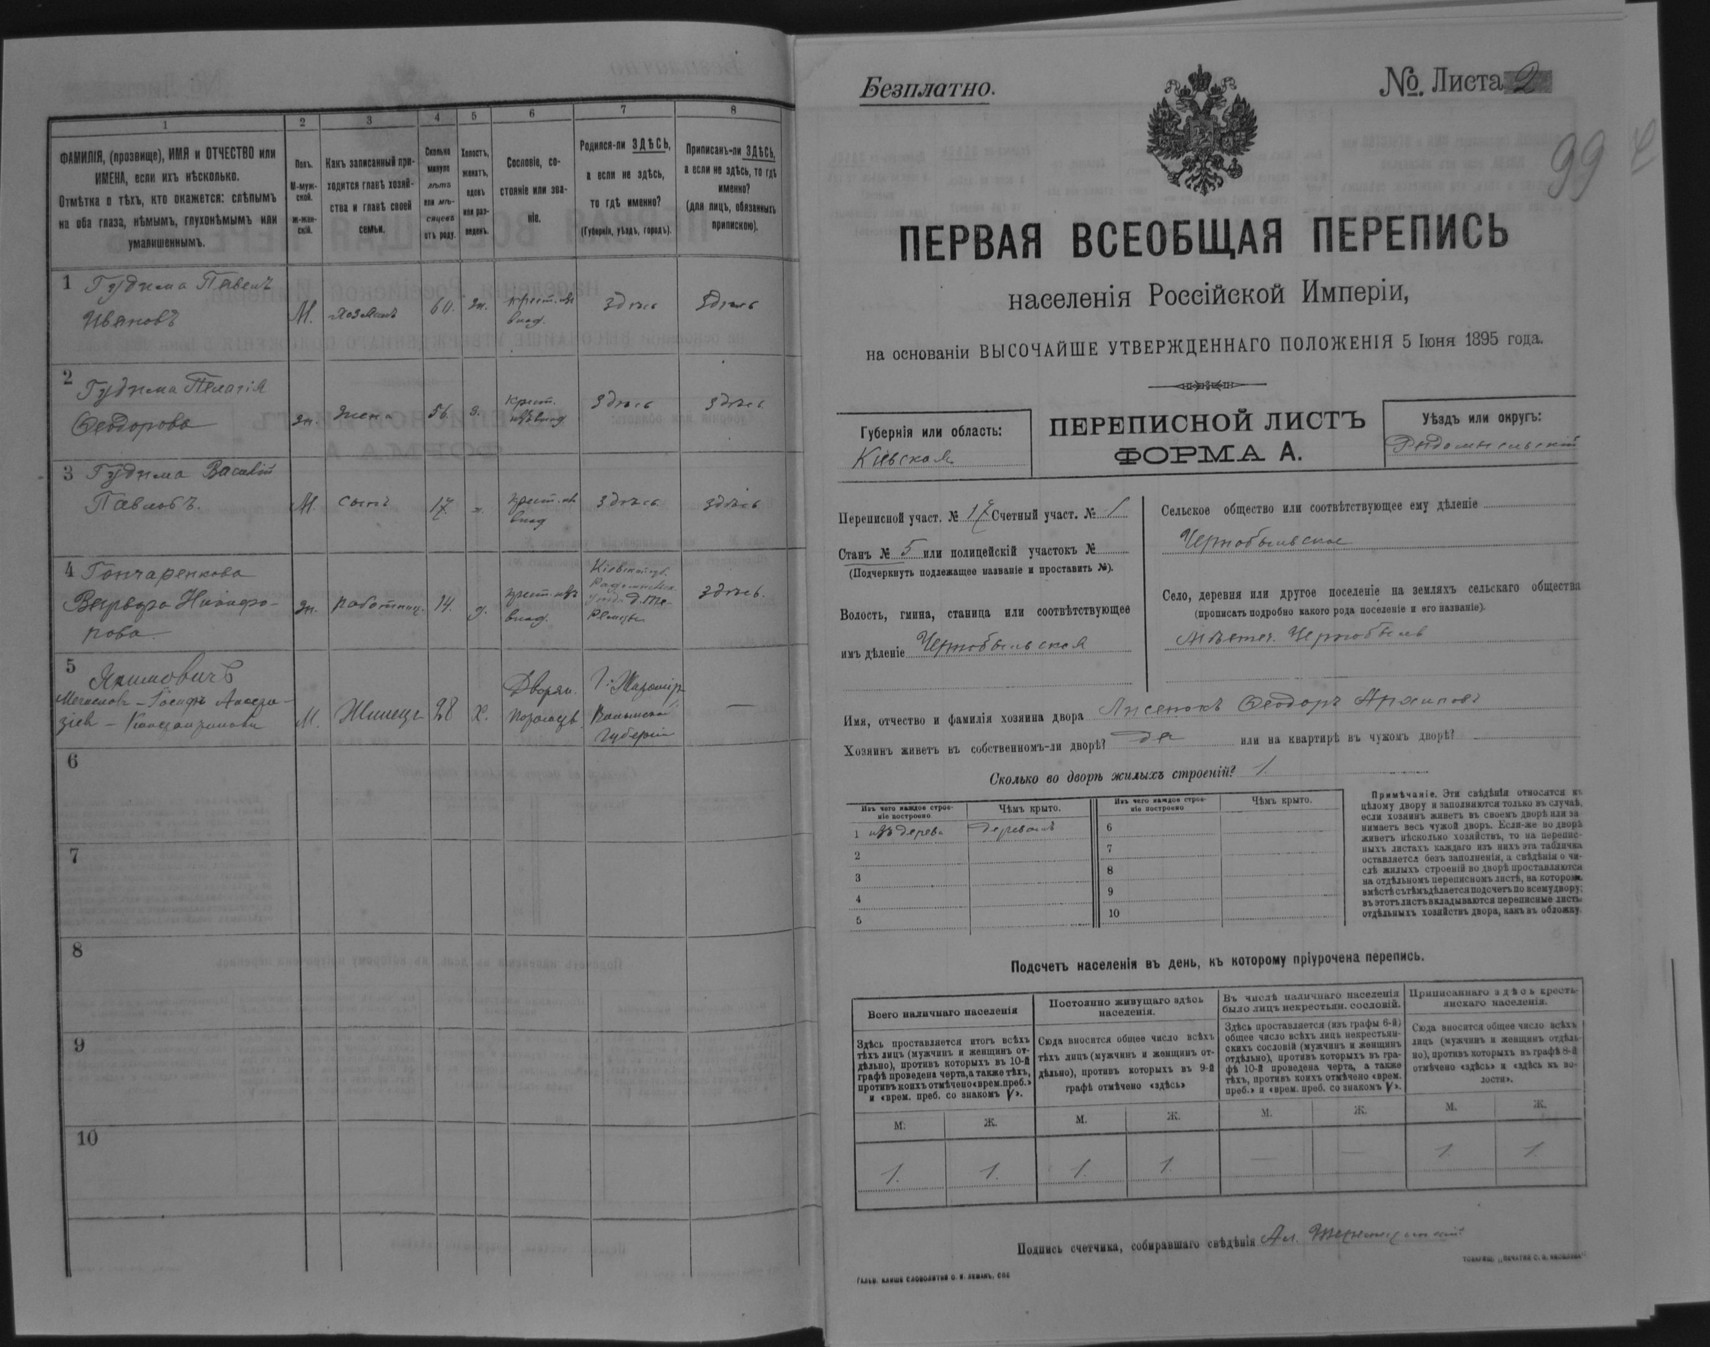 1 2 3 4 5 6 7 8
ФАМИЛІЯ, (прозвище), ИМЯ и ОТЧЕСТВО или
ИМЕНА, если ихъ нѣсколько.
Отмѣтка о тѣхъ, кто окажется: слѣпымъ
на оба глаза, нѣмымъ, глухонѣмымъ или
умалишеннымъ.
Полъ.
М-муж-
ской.
ж-жен-
скій.
Какъ записанный при-
ходится главѣ хозяй-
ства и главѣ своей
семьи.
Сколько
минуло
лѣтъ
или мѣ-
сяцевъ
отъ роду.
Холостъ,
женатъ,
вдовъ
или раз-
веденъ.
Сословіе, со-
стояніе или зва-
ніе.
Родился-ли ЗДѢСЬ,
а если не здѣсь,
то гдѣ именно?
(Губернія, уѣздъ, городъ).
Приписанъ-ли ЗДѢСЬ,
а если не здѣсь, то гдѣ
именно?
(для лицъ, обязанныхъ
припискою).
1 Гудима Павелъ
Ивановъ
М. хозяинъ 60. жн. здѣсь здѣсь
2 Гудима Пелагія
Ѳеодорова
жн. жена 56 з. крест. здѣсь здѣсь
3 Гудима Василій
Павловъ.
М. сынъ 17 здѣсь здѣсь
4 Гончаренкова
Варвара Никифо-
рова
жн. работниц. 14. д. здѣсь.
5 Якимовичъ
М. Жилецъ 28 х. Дворян. Г. Житомір —
Волынской
Губерніи
6
7
8
9
10
Безплатно.
№. Листа 2
99
ПЕРВАЯ ВСЕОБЩАЯ ПЕРЕПИСЬ
населенія Россійской Имперіи,
на основаніи ВЫСОЧАЙШЕ УТВЕРЖДЕННАГО ПОЛОЖЕНІЯ 5 Іюня 1895 года.
Губернія или область:
Кіевская
ПЕРЕПИСНОЙ ЛИСТЪ
ФОРМА А.
Уѣздъ или округъ:
Радомысльскій
Переписной участ. № 17 Счетный участ. № 1
Станъ № 5 или полицейскій участокъ №
(Подчеркнуть подлежащее названіе и проставить №).
Волость, гмина, станица или соотвѣтствующее
имъ дѣленіе Чернобыльская
Сельское общество или соотвѣтствующее ему дѣленіе
Чернобыльское
Село, деревня или другое поселеніе на земляхъ сельскаго общества
(прописать подробно какого рода поселеніе и его названіе).
Мѣстеч. Чернобыль
Имя, отчество и фамилія хозяина двора Лисенокъ Ѳеодоръ Архиповъ
Хозяинъ живетъ въ собственномъ-ли дворѣ? да или на квартирѣ въ чужомъ дворѣ?
Сколько во дворѣ жилыхъ строеній? 1
Изъ чего каждое строе-
ніе построено
Чѣмъ крыто.
Изъ чего каждое строе-
ніе построено
Чѣмъ крыто.
1 изъ дерева деревомъ 6
2 7
3 8
4 9
5 10
Примѣчаніе. Эти свѣдѣнія относятся къ
цѣлому двору и заполняются только въ случаѣ,
если хозяинъ живетъ въ своемъ дворѣ или за
нимаетъ весь чужой дворъ. Если-же во дворѣ
живетъ нѣсколько хозяйствъ, то на перепис-
ныхъ листахъ каждаго изъ нихъ эта табличка
оставляется безъ заполненія, а свѣдѣнія о чи-
слѣ жилыхъ строеній во дворѣ проставляются
на отдѣльномъ переписномъ листѣ, на которомъ
вмѣстѣ съ тѣмъ дѣлается подсчетъ по всему двору;
въ этотъ листъ вкладываются переписные листы
отдѣльныхъ хозяйствъ двора, какъ въ обложку.
Подсчетъ населенія въ день, къ которому пріурочена перепись.
Всего наличнаго населенія
Здѣсь проставляется итогъ всѣхъ
тѣхъ лицъ (мужчинъ и женщинъ от-
дѣльно), противъ которыхъ въ 10-й
графѣ проведена черта, а также тѣхъ,
противъ коихъ отмѣчено «врем. преб.»
и «врем. преб. со знакомъ V».
Постоянно живущаго здѣсь
населенія.
Сюда вносится общее число всѣхъ
тѣхъ лицъ (мужчинъ и женщинъ от-
дѣльно), противъ которыхъ въ 9-й
графѣ отмѣчено «здѣсь»
Въ числѣ наличнаго населенія
было лицъ некрестьян. сословій.
Здѣсь проставляется (изъ графы 6-й)
общее число всѣхъ лицъ некрестьян-
скихъ сословій (мужчинъ и женщинъ
отдѣльно), противъ которыхъ въ гра-
фѣ 10-й проведена черта, а также
тѣхъ, противъ коихъ отмѣчено «врем.
преб.» и «врем. преб. со знакомъ V».
Приписаннаго здѣсь кресть-
янскаго населенія.
Сюда вносится общее число всѣхъ
лицъ (мужчинъ и женщинъ отдѣль-
но), противъ которыхъ въ графѣ 8-й
отмѣчено «здѣсь» и «здѣсь въ во-
лости».
М. Ж. М. Ж. М. Ж. М. Ж.
1. 1. 1. 1. — — 1. 1.
Подпись счетчика, собиравшаго свѣдѣнія Ал.
Гальв. клише словолитни О. И. Леманъ, СПБ